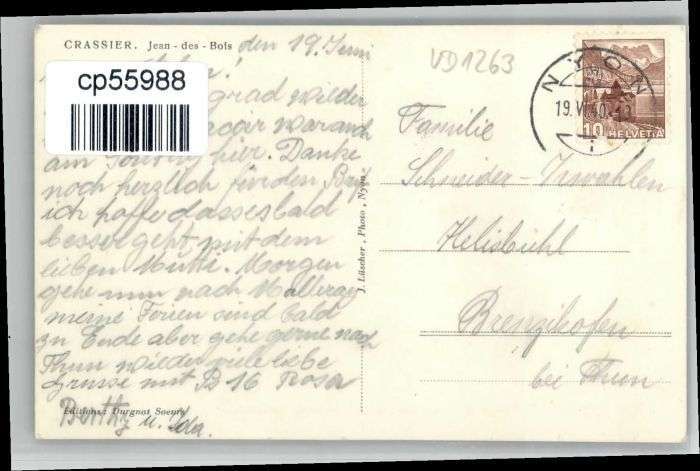 CRASSIER. Jean-des-Bois
den 19. Juni
VD1263
cp55988
grad wieder
war auch
am Sonntag hier. Danke
noch herzlich für den
ich hoffe dass es bald
besser geht mit dem
lieben Mutti. Morgen
gehe nun nach
meine Ferien sind bald
zu Ende aber gehe gerne nach
Thun wieder viele liebe
Grüsse mit B 16 Rosa
Berthy u. Ida.
Editions: Burgnot Soeurs
J. Lüscher, Photo, Nyon
NYON
19.VI.40
10 HELVETIA
Familie
Schneider-
Helisbühl
Brenzikofen
bei Thun